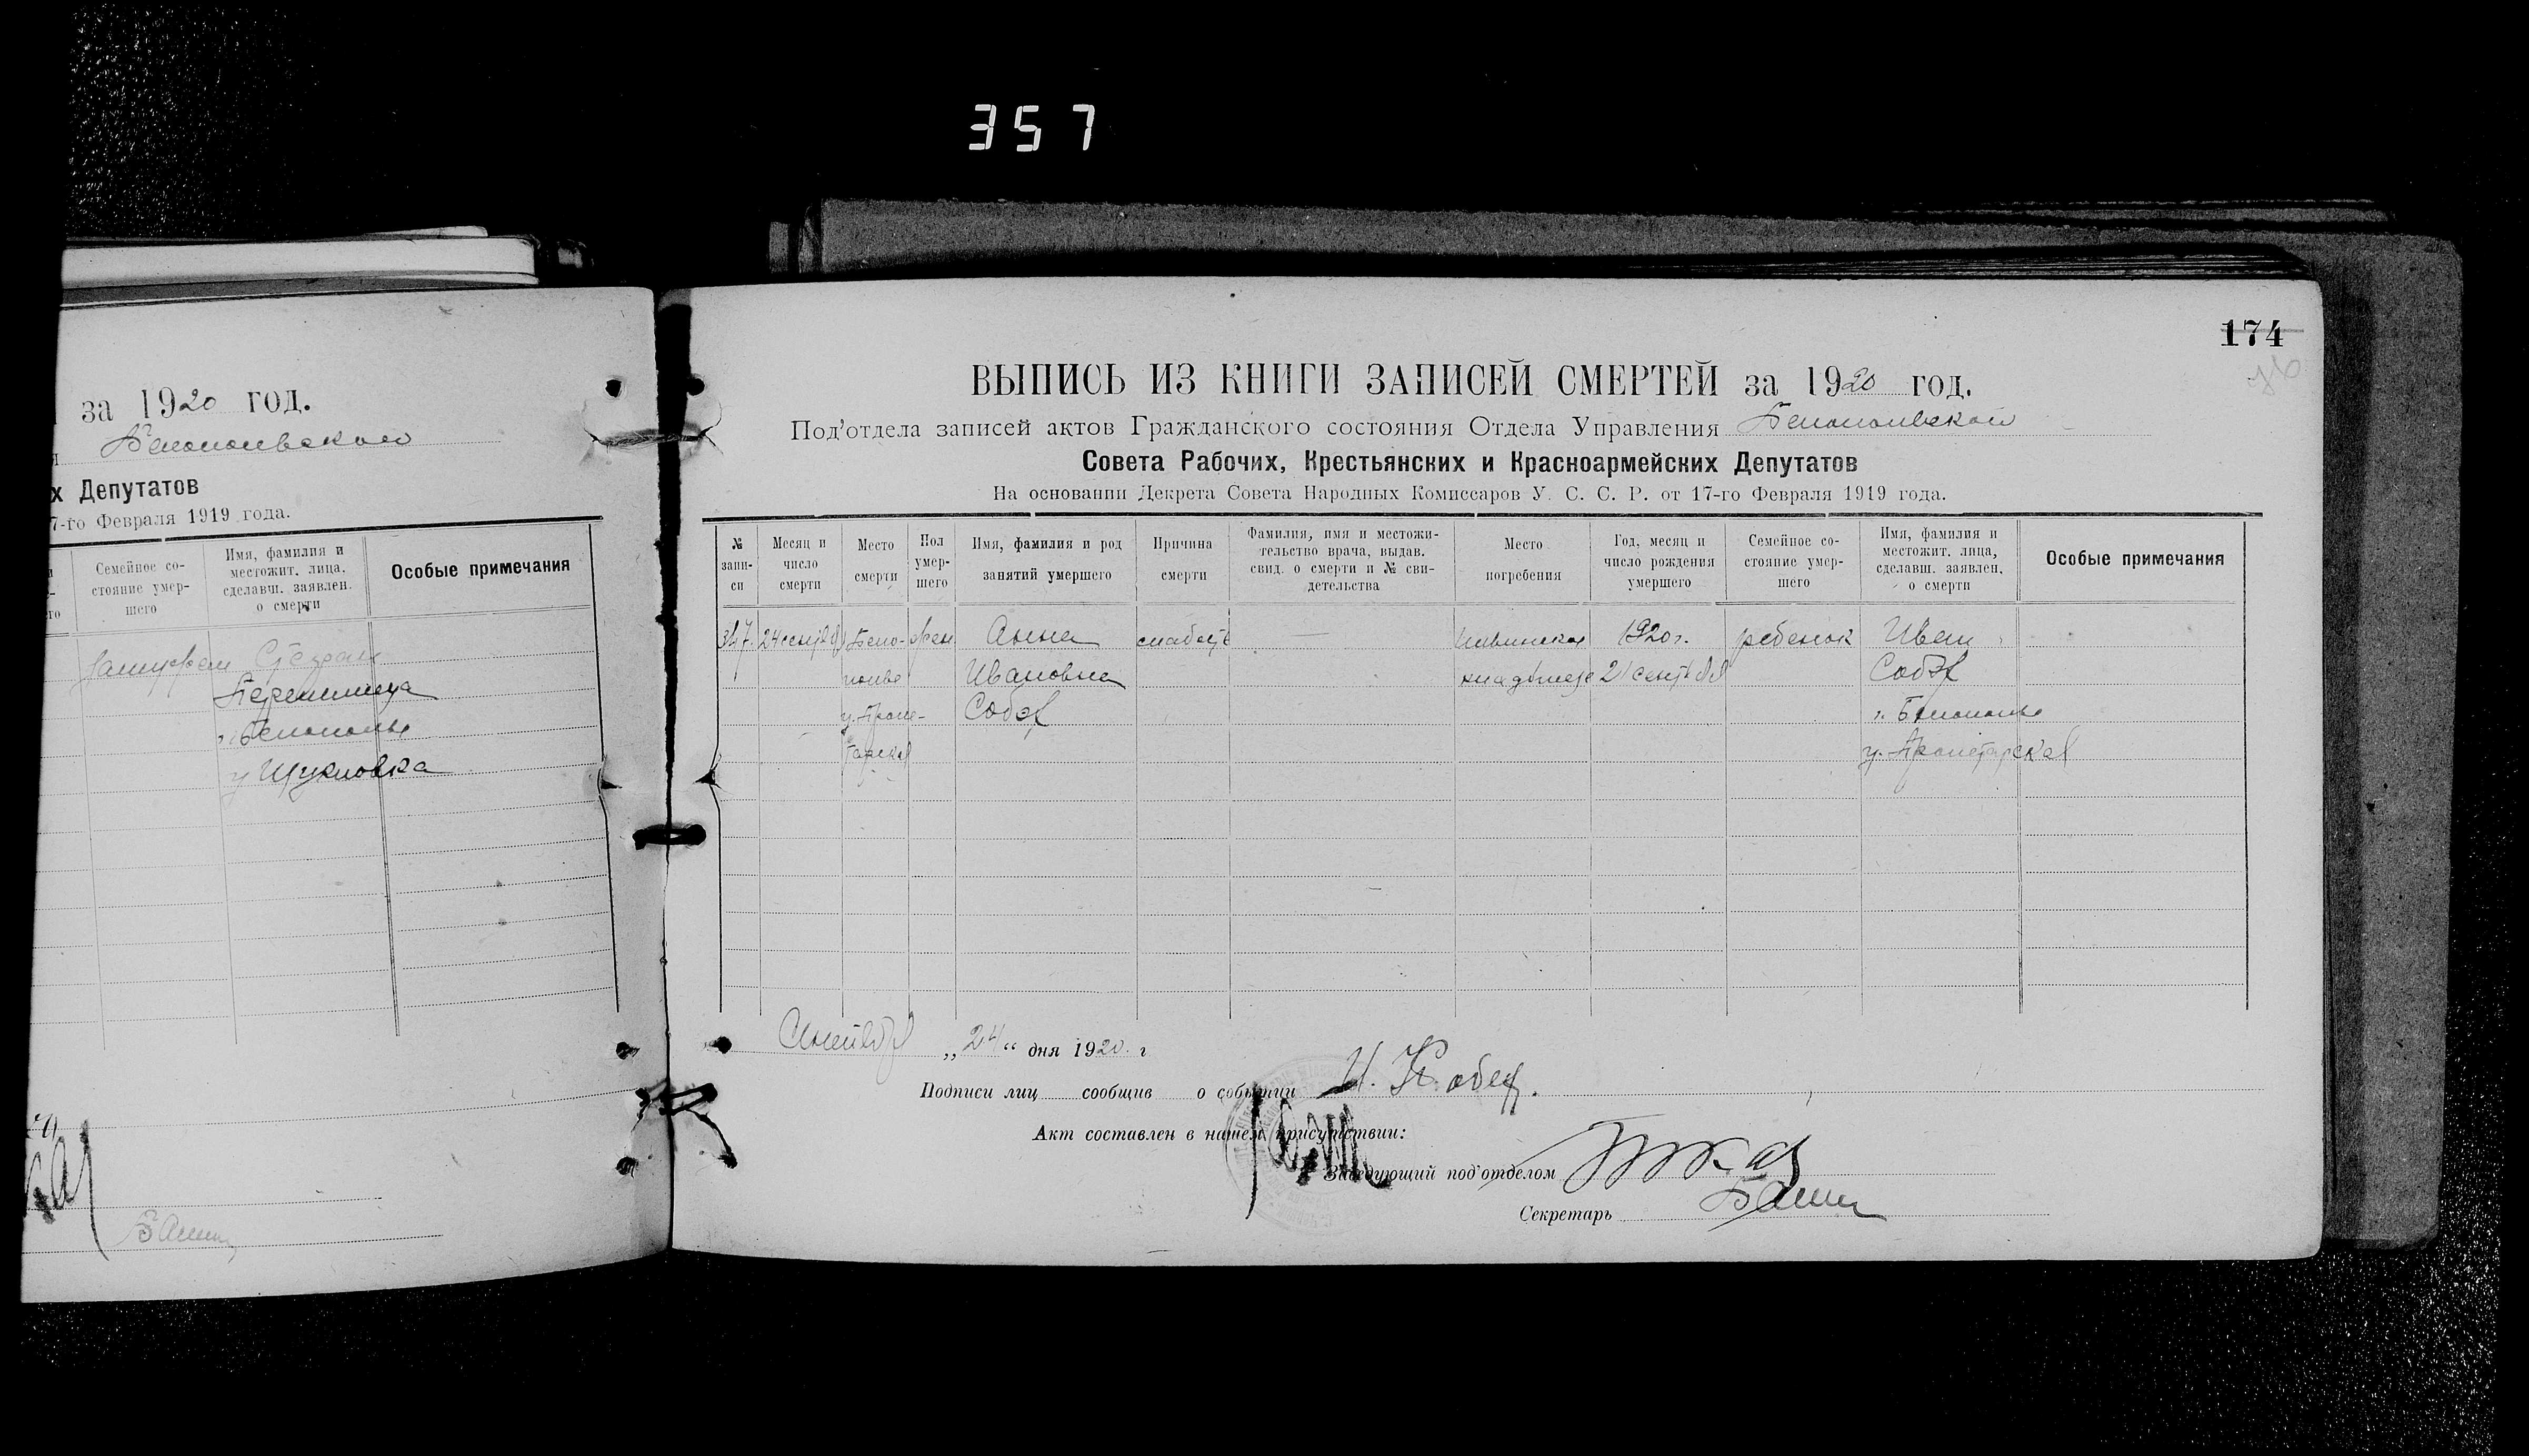 357
за 1920 год.
Белопольского
х Депутатов
7-го Февраля 1919 года.
Семейное со-
стояние умер-
шего
Имя, фамилия и
местожит. лица,
сделавш. заявлен.
о смерти
Особые примечания
замужем Степан
г. Белополье
174
ВЫПИСЬ ИЗ КНИГИ ЗАПИСЕЙ СМЕРТЕЙ за 1920 год.
Под'отдела записей актов Гражданского состояния Отдела Управления Белопольского
Совета Рабочих, Крестьянских и Красноармейских Депутатов
На основании Декрета Совета Народных Комиссаров У. С. С. Р. от 17-го Февраля 1919 года.
№
запи-
си
Месяц и
число
смерти
Место
смерти
Пол
умер-
шего
Имя, фамилия и род
занятий умершего
Причина
смерти
Фамилия, имя и местожи-
тельство врача, выдав.
свид. о смерти и № сви-
детельства
Место
погребения
Год, месяц и
число рождения
умершего
Семейное со-
стояние умер-
шего
Имя, фамилия и
местожит. лица,
сделавш. заявлен.
о смерти
Особые примечания
347. 24 сентября Бело- жен. Анна слабость Ильинская 1920 г. ребенок Иван
полье Ивановна кладбище 21 сентября
у. Проле-
тарская
г. Белополье
у. Пролетарская
Сентября „24“ дня 1920 г
Подписи лиц сообщив о событии И.
Акт составлен в нашем присутствии:
Заведующий под'отделом
Секретарь